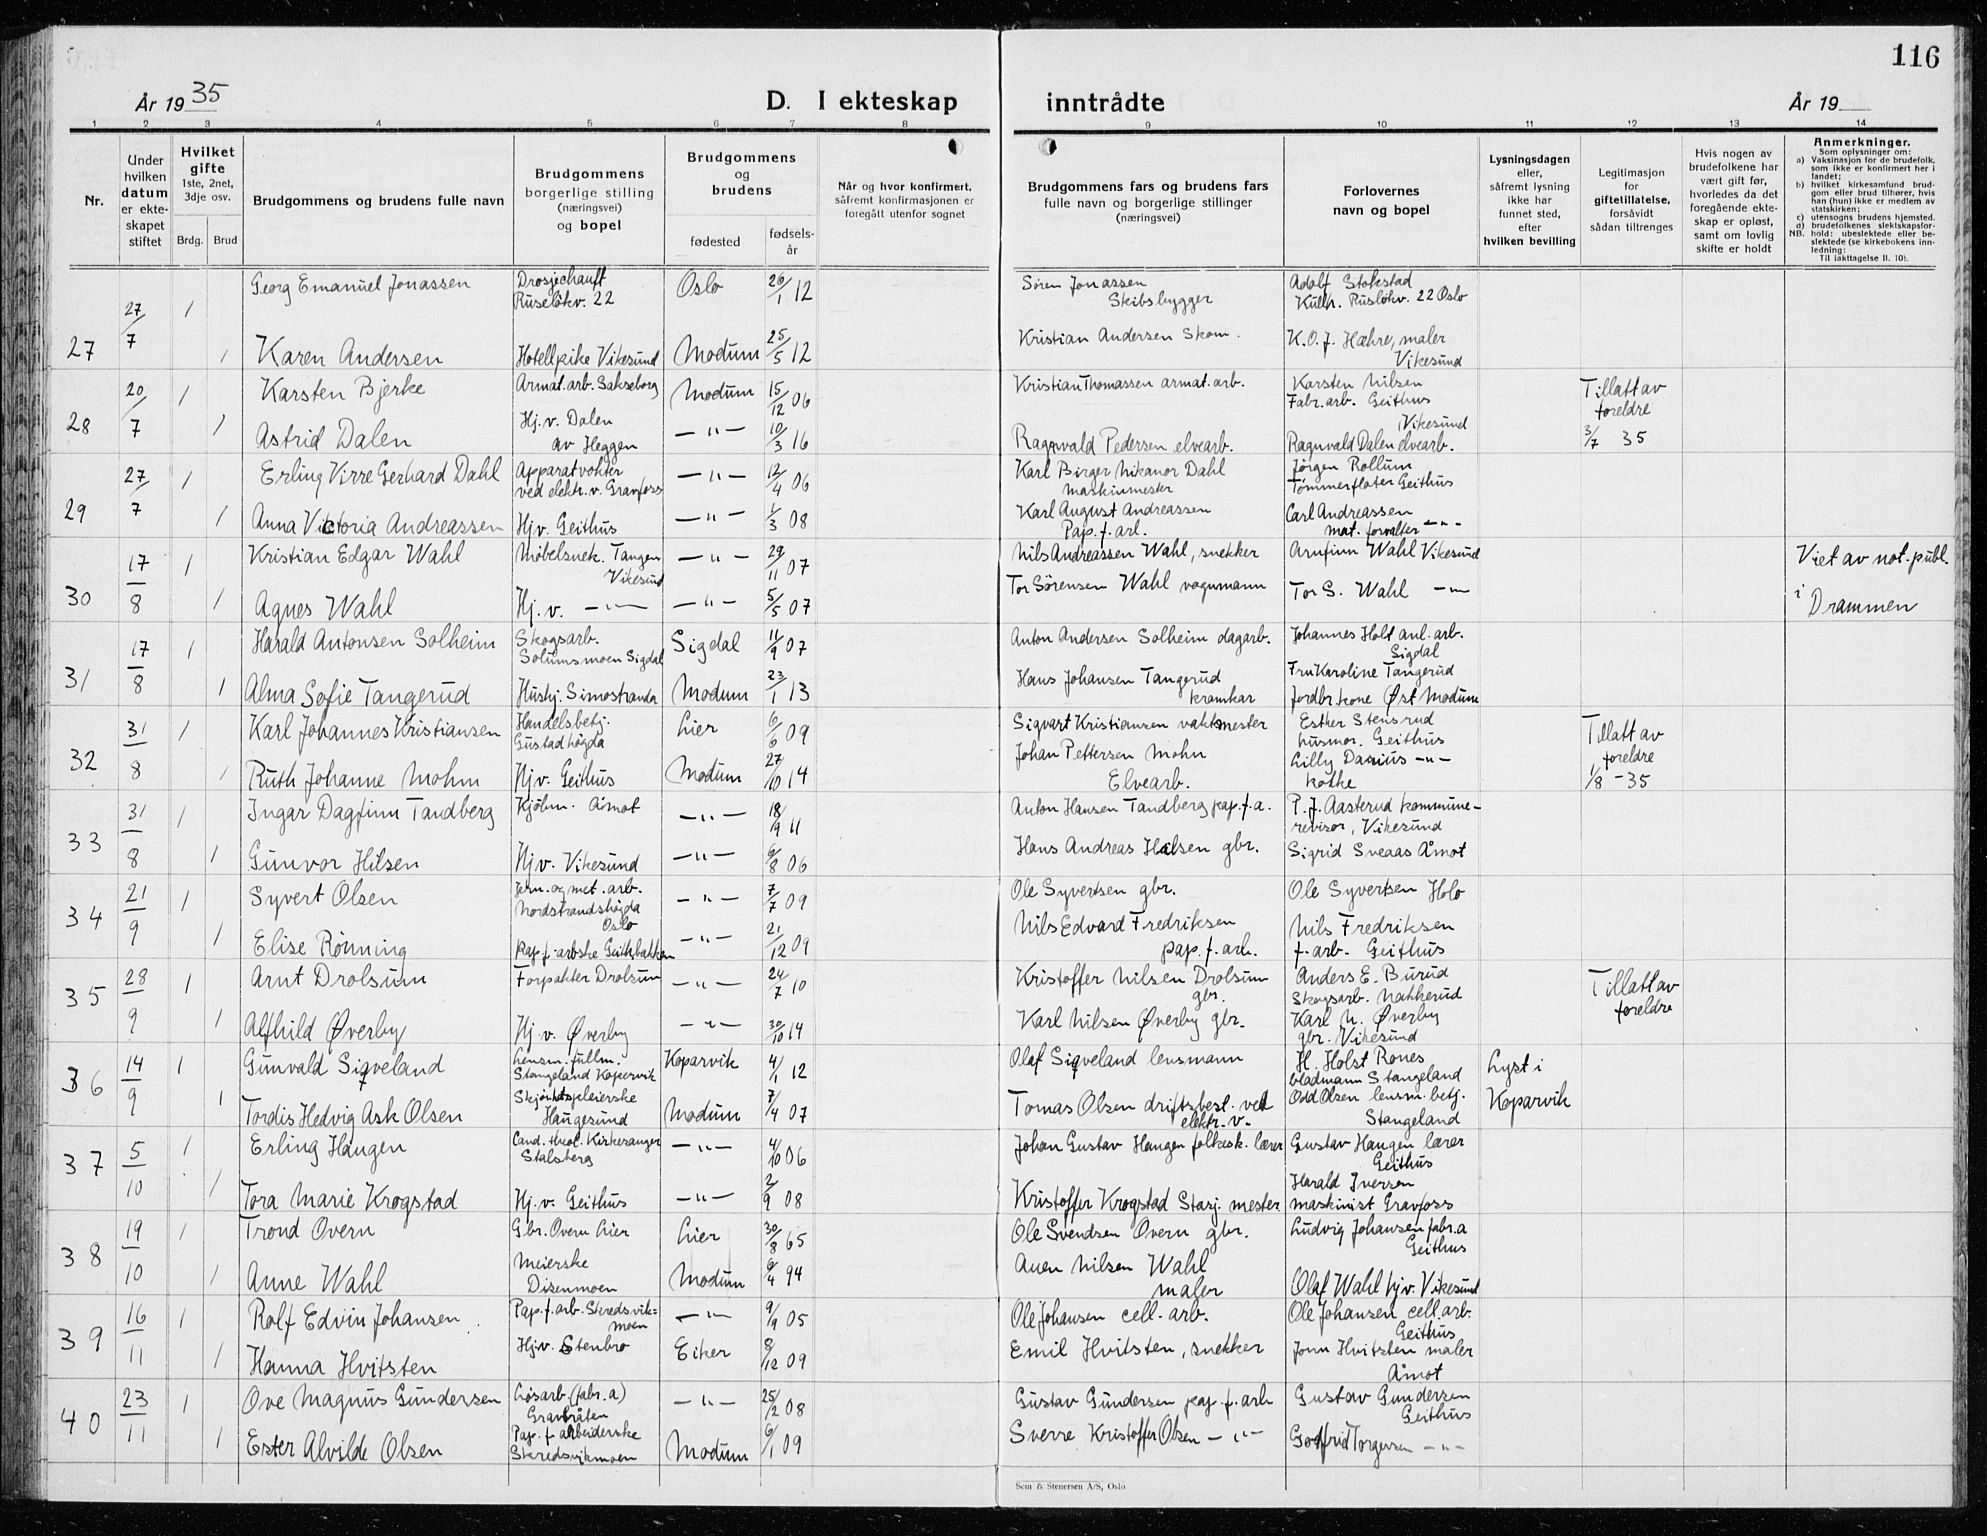 116
År 1935
D. I ekteskap inntrådte
År 19
1 2 3 4 5 6 7 8 9 10 11 12 13 14
Nr.
Under hvilken datum er ekteskapet stiftet
Hvilket gifte
1ste, 2net, 3dje osv.
Brdg. Brud
Brudgommens og brudens fulle navn
Brudgommens
borgerlige stilling
(næringsvei)
og bopel
Brudgommens
og
brudens
fødested
fødselsår
Når og hvor konfirmert,
såfremt konfirmasjonen er
foregått utenfor sognet
Brudgommens fars og brudens fars
fulle navn og borgerlige stillinger
(næringsvei)
Forlovernes
navn og bopel
Lysningsdagen
eller,
såfremt lysning
ikke har
funnet sted,
efter
hvilken bevilling
Legitimasjon
for
giftetillatelse,
forsåvidt
sådan tiltrenges
Hvis nogen av
brudefolkene har
vært gift før,
hvorledes da det
foregående ekte-
skap er opløst,
samt om lovlig
skifte er holdt
Anmerkninger.
Som oplysninger om:
a) Vaksinasjon for de brudefolk, som ikke er konfirmert her i landet;
b) hvilket kirkesamfund brudgom eller brud tilhører, hvis han (hun) ikke er medlem av statskirken;
c) utensogns brudens hjemsted.
d) brudefolkenes slektskapsforhold: ubeslektede eller beslektede (se kirkebokens innledning:
NB. Til iakttagelse II. 10).
27 27/7 1 Georg Emanuel Jonassen Drosjechauff Ruseløkv. 22 Oslo 26/1 12 Søren Jonassen Skibsbygger Adolf Stokstad Kullh. Rusløkv. 22 Oslo
1 Karen Andersen Hotellpike Vikesund Modum 25/5 12 Kristian Andersen Skom. K.O.J. Hæhre, maler Vikesund
28 20/7 1 Karsten Bjerke Armat. arb. Sakseborg Modum 15/12 06 Kristian Thomassen armat. arb. Karsten Nilsen Fabr. arb. Geithus Tillatt av foreldre 3/7 35
1 Astrid Dalen Hj. v. Dalen av Heggen —"— 10/3 16 Ragnvald Pedersen elvearb. Ragnvald Dalen elvearb. Vikesund
29 27/7 1 Erling Virre Gerhard Dahl Apparatvokter ved elektr. v. Gravfoss —"— 12/4 06 Karl Birger Nikanor Dahl maskinmester Jørgen Rollum Tømmerfløter Geithus
1 Anna Victoria Andreassen Hj.v. Geithus —"— 1/3 08 Karl August Andreassen Pap. f. arb. Carl Andreassen mat. forvalter —"—
30 17/8 1 Kristian Edgar Wahl Møbelsnek. Tangen Vikesund —"— 29/11 07 Nils Andreassen Wahl, snekker Arnfinn Wahl Vikesund Viet av not. publ. i Drammen
1 Agnes Wahl Hj. v. —"— —"— 5/5 07 Tor Sørensen Wahl vognmann Tor S. Wahl —"—
31 17/8 1 Harald Antonsen Solheim Skogsarb. Solumsmoen Sigdal Sigdal 11/9 07 Anton Andersen Solheim dagarb. Johannes Holt anl. arb. Sigdal
1 Alma Sofie Tangerud Hushj. Simostranda Modum 23/1 13 Hans Johansen Tangerud kramkar Fru Karoline Tangerud jordbr. kone Øst Modum
32 31/8 1 Karl Johannes Kristiansen Handelsbetj. Gustadhøgda Lier 6/6 09 Sigvart Kristiansen vaktmester Esther Stensrud husmor. Geithus Tillatt av foreldre 1/8 – 35
1 Ruth Johanne Mohn Hj v. Geithus Modum 27/10 14 Johan Pettersen Mohn Elvearb. Lilly Darius —"— kokke
33 31/8 1 Ingar Dagfinn Tandberg Kjøbm. Åmot —"— 18/9 11 Anton Hansen Tandberg pap. f. a. P. J. Aasterud kommune- revisor, Vikesund
1 Gunvor Hilsen Hj v. Vikesund —"— 6/8 06 Hans Andreas Hilsen gbr. Sigrid Sveaas Åmot
34 21/9 1 Syvert Olsen Jern. og met. arb. Nordstrandshøgda Oslo —"— 7/7 09 Ole Syvertsen gbr. Ole Syvertsen Holo
1 Elise Rønning Pap. f. arbske Geithsbakken —"— 21/12 09 Nils Edvard Fredriksen pap. f. arb. Nils Fredriksen f. arb. Geithus
35 28/9 1 Arnt Drolsum Forpakter Drolsum —"— 24/7 10 Kristoffer Nilsen Drolsum gbr. Anders E. Burud Skogsarb. Nakkerud Tillatt av foreldre
1 Alfhild Øverby Hj. v. Øverby —"— 30/10 14 Karl Nilsen Øverby gbr. Karl N. Øverby gbr. Vikesund
36 14/9 1 Gunvald Sigveland Lensm. fullm. Stangeland Kopervik Koparvik 4/1 12 Olaf Sigveland lensmann H. Holst Rones bladmann Stangeland Lyst i Koparvik
1 Tordis Hedvig Ask Olsen Skjønhtspleierske Haugesund Modum 7/4 07 Tomas Olsen driftsbest. ved elektr. v. Odd Olsen lensm. betj. Stangeland
37 5/10 1 Erling Haugen Cand. theol. Kirkesanger Stalsberg —"— 4/10 06 Johan Gustav Haugen folkesk. lærer Gustav Haugen lærer Geithus
1 Tora Marie Krogstad Hj. v. Geithus —"— 2/9 08 Kristoffer Krogstad Stasj. mester Harald Iversen maskinist Gravfoss
38 19/10 1 Trond Overn Gbr. Overn Lier Lier 30/8 65 Ole Svendsen Overn gbr. Ludvig Johansen fabr. a Geithus
1 Anne Wahl Meierske Disenmoen Modum 6/4 94 Auen Nilsen Wahl maler Olaf Wahl hj.v. Vikesund
39 16/11 1 Rolf Edvin Johansen Pap. f. arb. Skredsvik- moen —"— 9/9 05 Ole Johansen cell. arb. Ole Johansen cell. arb. Geithus
1 Hanna Hvitsten Hj.v. Stenbro Eiker 8/12 09 Emil Hvitsten, snekker Jonn Hvitsten maler Åmot
40 23/11 1 Ove Magnus Gundersen Løsarb. (fabr. a) Gravbråten —"— 25/12 08 Gustav Gundersen pap. f. arb Gustav Gundersen Geithus
1 Ester Alvilde Olsen Pap. f. arbeiderske Skredsvikmoen Modum 6/1 09 Sverre Kristoffer Olsen —"— Godfrid Torgersen —"—
Sem & Stenersen A/S, Oslo